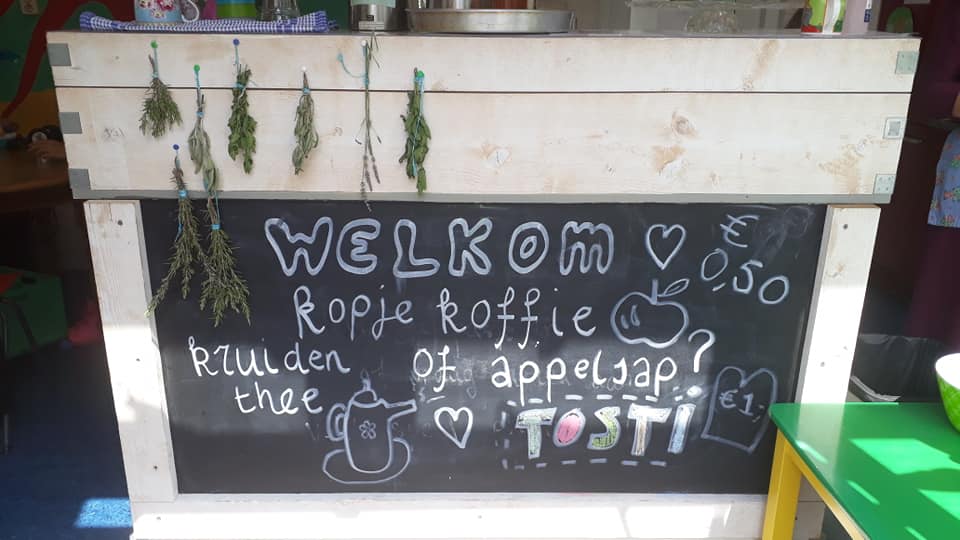 WELKOM
€
0,50
kopje koffie
kruiden
thee
of appelsap?
TOSTi
€1,-